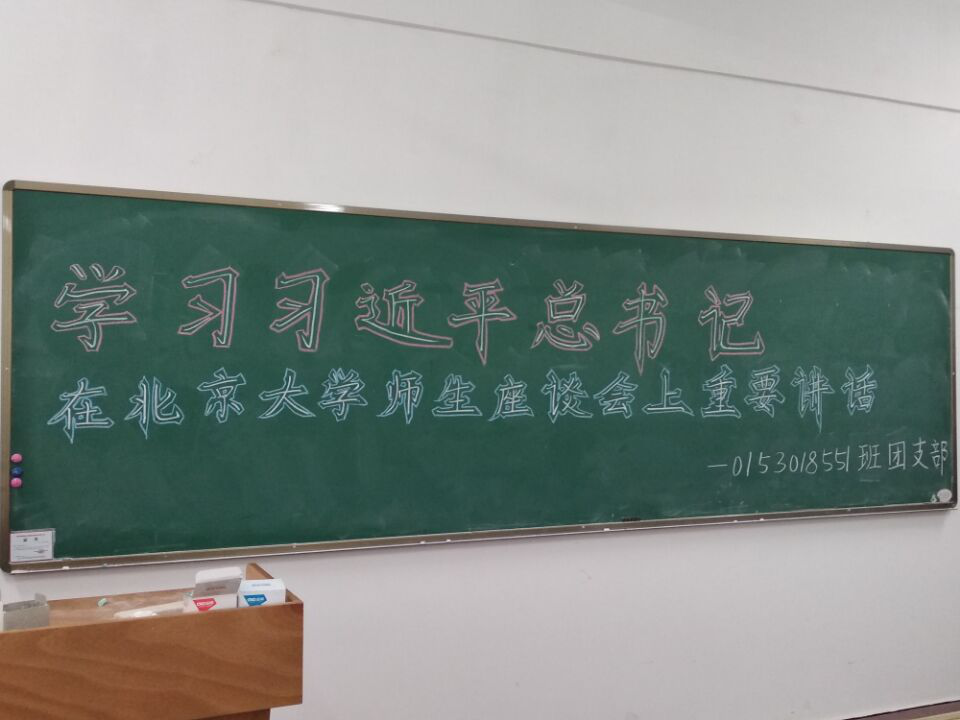 学习习近平总书记
在北京大学师生座谈会上重要讲话
—0153018551班团支部